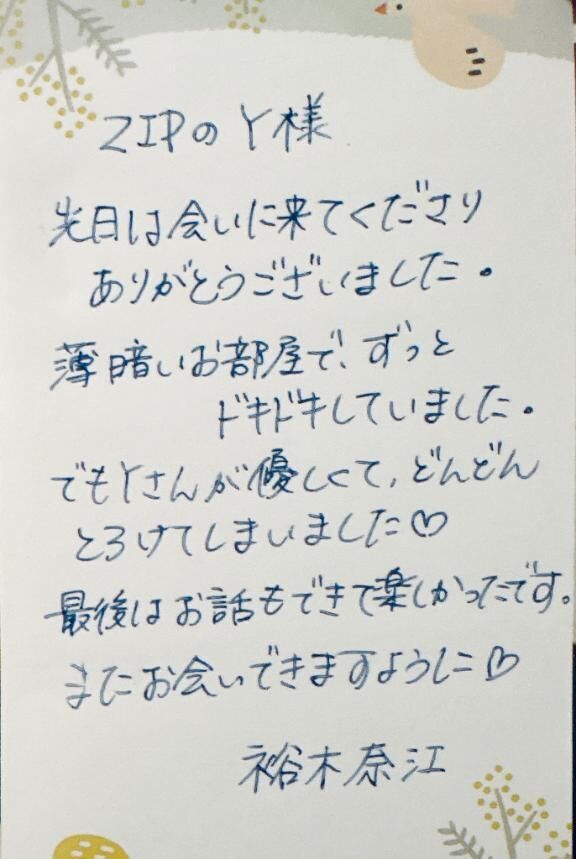 ZIPのY様
先日は会いに来てくださり
ありがとうございました。
薄暗いお部屋で、ずっと
ドキドキしていました。
でもYさんが優しくて、どんどん
とろけてしまいました♡
最後はお話もできて楽しかったです。
またお会いできますように♡
裕木奈江